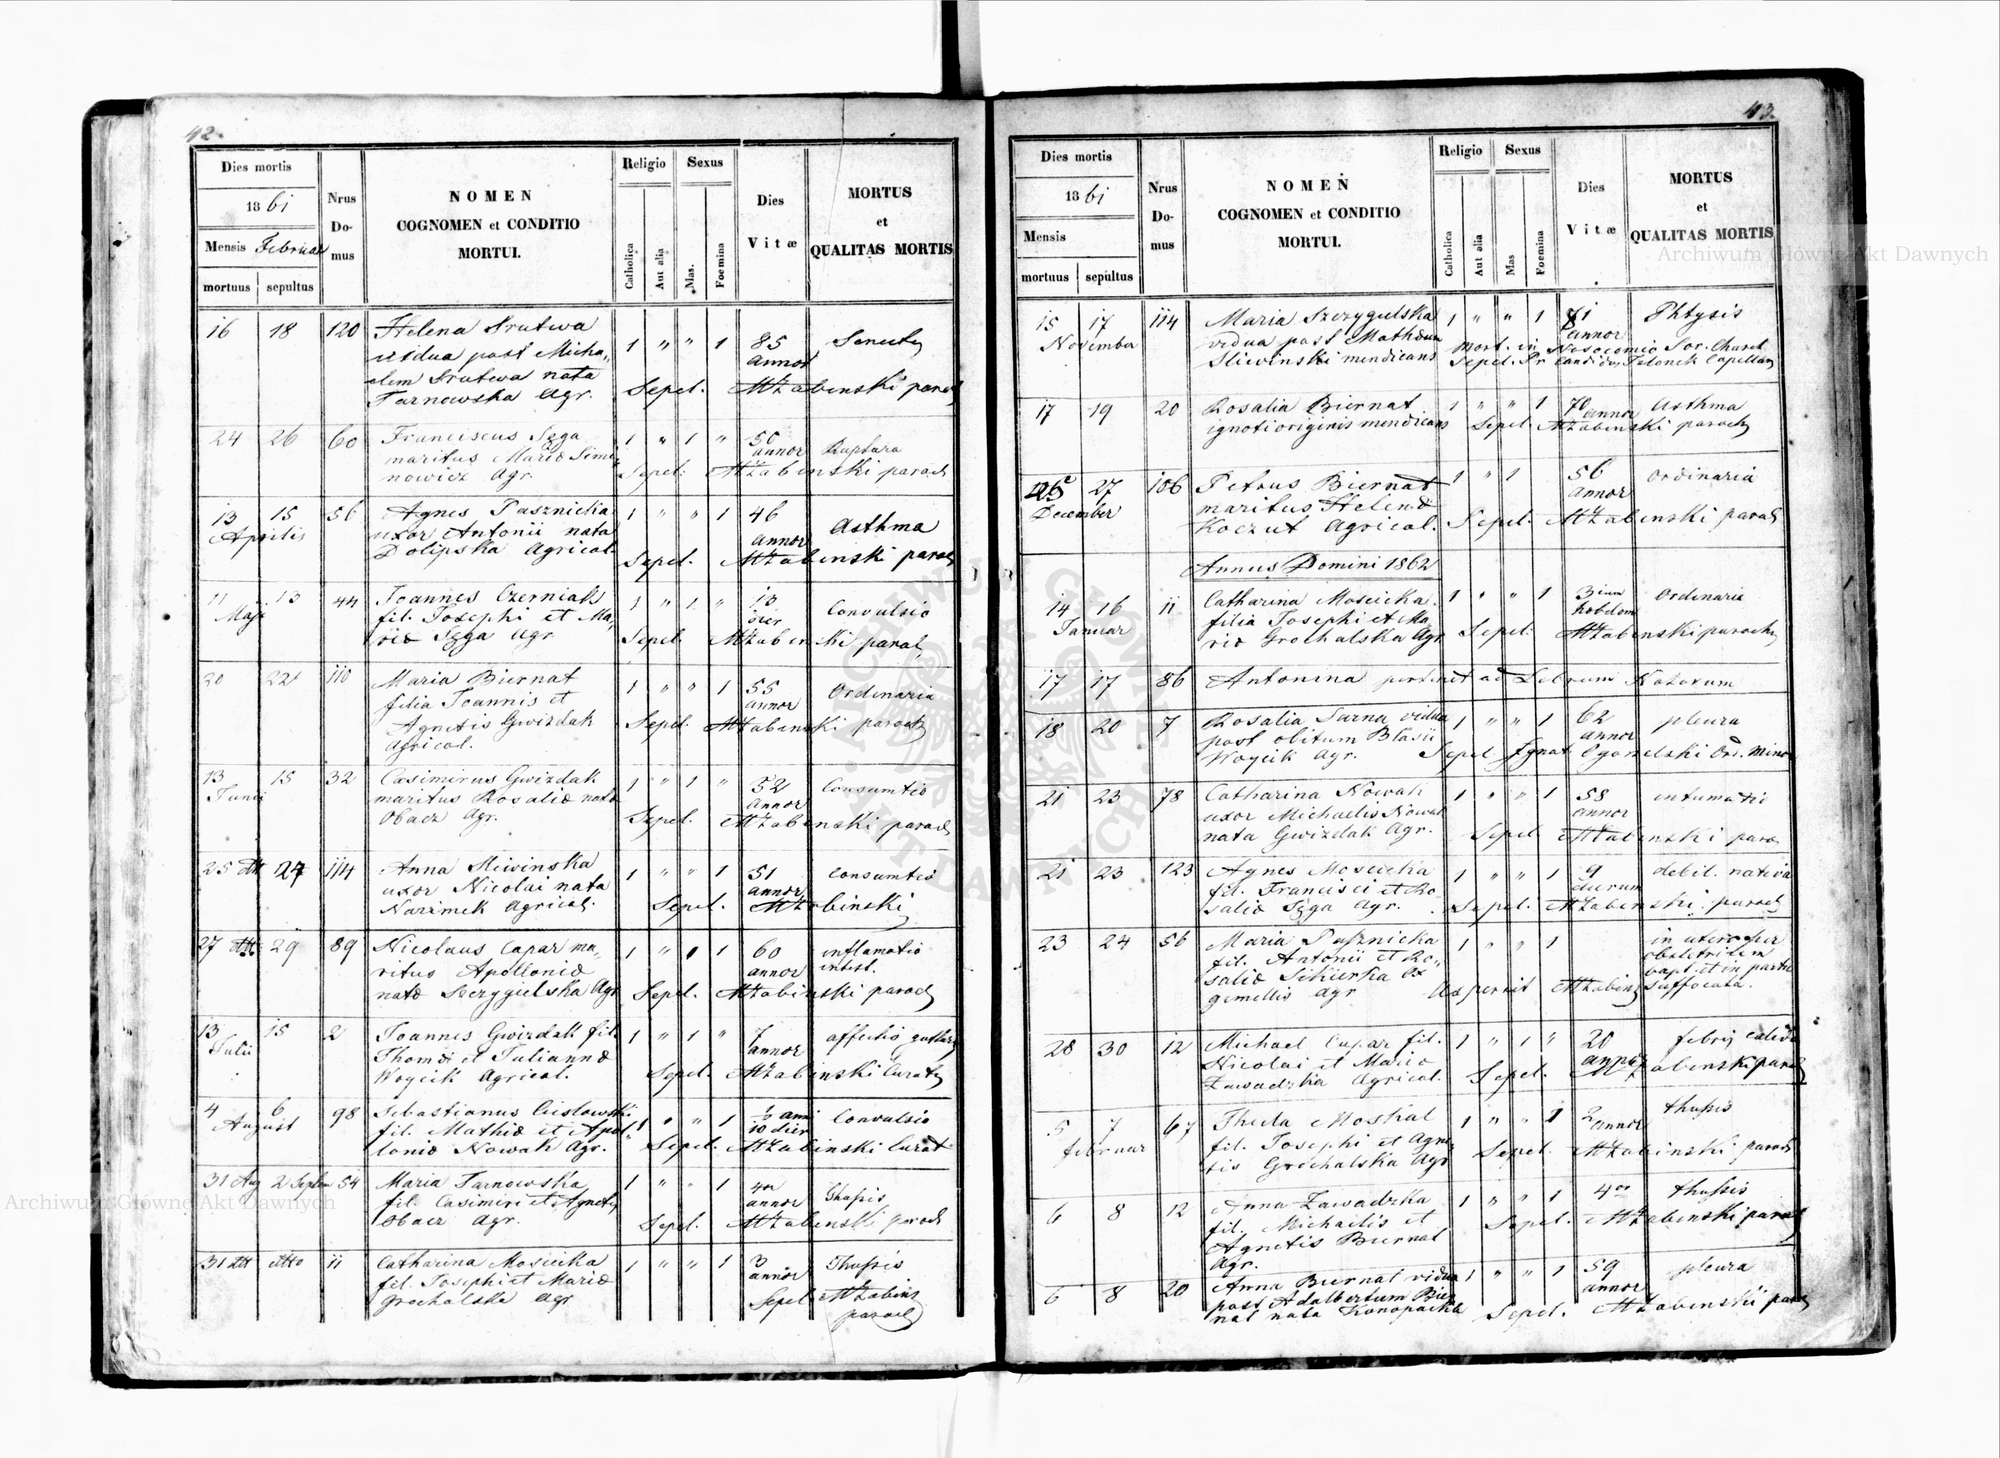 42.
Dies mortis
1861
Mensis Februar
mortuus sepultus
Nrus Do- mus
NOMEN
COGNOMEN et CONDITIO
MORTUI.
Religio
Catholica Aut alia
Sexus
Mas. Foemina
Dies Vitæ
MORTUS
et
QUALITAS MORTIS
16 18 120 Helena Srutwa 1 " " 1 85 annor Senecte
vidua post Micha,
elem Srutwa nata
Tarnowska Agr. Sepel. MŻabinski paroch
24 26 60 Franciscus Sęga 1 " 1 " 50 annor Ruptura
maritus Mariæ Simi,
nowicz Agr. Sepel. MŻabinski paroch
13 15 56 Agnes Pasznicka 1 " " 1 46 annor Asthma
Aprilis uxor Antonii nata
Dolipska Agricol. Sepel. MŻabinski paroch
11 13 44 Joannes Czerniak 1 " 1 " 13 dier Convulsio
Maji fil. Josephi et Ma,
riæ Sęga Agr Sepel. MŻabinski paroch
20 22 110 Maria Biernat 1 " " 1 55 annor Ordinaria
filia Joannis et
Agnetis Gwizdak
Agricol. Sepel. MŻabinski paroch
13 15 32 Casimirus Gwizdak 1 " 1 " 52 annor Consumtio
Junii maritus Rosaliæ nata
Obacz Agr. Sepel. MŻabinski paroch
25 dtt 27 114 Anna Sliwinska 1 " " 1 51 annor Consumtio
uxor Nicolai nata
Nazimek Agricol. Sepel. MŻabinski
27 dtt 29 89 Nicolaus Capar ma, 1 " 1 " 60 annor inflamatio intest.
ritus Apolloniæ
natæ Szczygielska Agr Sepel. MŻabinski paroch
13 15 2 Joannes Gwizdak fil. 1 " 1 " 7 annor affectio
Julii Thomæ et Juliannæ
Woycik Agricol. Sepel. MŻabinski Curat
4 6 98 Sebastianus Cieslowski 1 " " 1 1/2 anni 10 dier Convulsio
August fil. Mathiæ et Apol,
loniæ Nowak Agr. Sepel. MŻabinski Curat
31 Aug 2 Septem 54 Maria Tarnowska 1 " " 1 4or annor Thussis
fil. Casimiri et Agnetis
Obacz Agr. Sepel. MŻabinski paroch
31 dtt dtto 11 Catharina Moscicka 1 " " 1 3 annor Thussis
fil. Josephi et Mariæ
Grochalska Agr Sepel MŻabins
paroch
43.
Dies mortis
1861
Mensis
mortuus sepultus
Nrus Do- mus
NOMEN
COGNOMEN et CONDITIO
MORTUI.
Religio
Catholica Aut alia
Sexus
Mas Foemina
Dies Vitæ
MORTUS
et
QUALITAS MORTIS
15 17 114 Maria Szczygulska 1 " " 1 81 annor Phtysis
November vidua post Mathæum mort. in Nosocomio Sor. Charit
Sliwinski mendicans Sepel. Pr Candidus Capellan
17 19 20 Rosalia Biernat 1 " " 1 70 annor Asthma
ignoti originis mendicans Sepel. MŻabinski paroch
27 106 Petrus Biernat 1 " 1 56 annor Ordinaria
December maritus Helenæ
Koczut Agricol. Sepel. MŻabinski paroch
Annus Domini 1862
14 16 11 Catharina Moscicka 1 " " 1 3ium hebdom Ordinaria
Januar filia Josephi et Ma,
riæ Grochalska Agr Sepel. MŻabinski paroch
17 17 86 Antonina pertinet ad Librum Natorum
18 20 7 Rosalia Sarna vidua 1 " " 1 62 annor pleura
post obitum Blasii
Woycik Agr. Sepel Ignat Oganelski Ord. Minor
21 23 78 Catharina Nowak 1 " " 1 58 annor intumatio
uxor Michaelis Nowak
nata Gwizdak Agr. Sepel MŻabinski paroc
21 23 123 Agnes Moscicka 1 " " 1 9 dierum debil. nativa
fil. Francisci et Ro,
saliæ Sęga Agr. Sepel. MŻabinski paroch
23 24 56 Maria Pasznicka 1 " " 1 in utero per
fil. Antonii et Ro,, obstetricem
saliæ Sikierka Ex bapt. et in partu
gemellis Agr Aspersit MŻabins suffocata.
28 30 12 Michael Capar fil. 1 " 1 " 20 annor febris calida
Nicolai et Mariæ
Zawadzka Agricol. Sepel. MŻabinski paroch
5 7 67 Thecla Moskal 1 " " 1 2 annor thussis
Februar fil. Josephi et Agne,
tis Grochalska Agr Sepel. MŻabinski paroch
6 8 12 Anna Zawadzka 1 " " 1 4or thussis
fil. Michaelis et
Agnetis Biernat
Agr. Sepel. MŻabinski paroch
6 8 20 Anna Biernat vidua 1 " " 1 59 annor pleura
post Adalbertum Bier,
nat nata Konopacka Sepel. MŻabinski paroch
Archiwum Główne Akt Dawnych
Archiwum Główne Akt Dawnych
ARCHIWUM GŁÓWNE AKT DAWNYCH